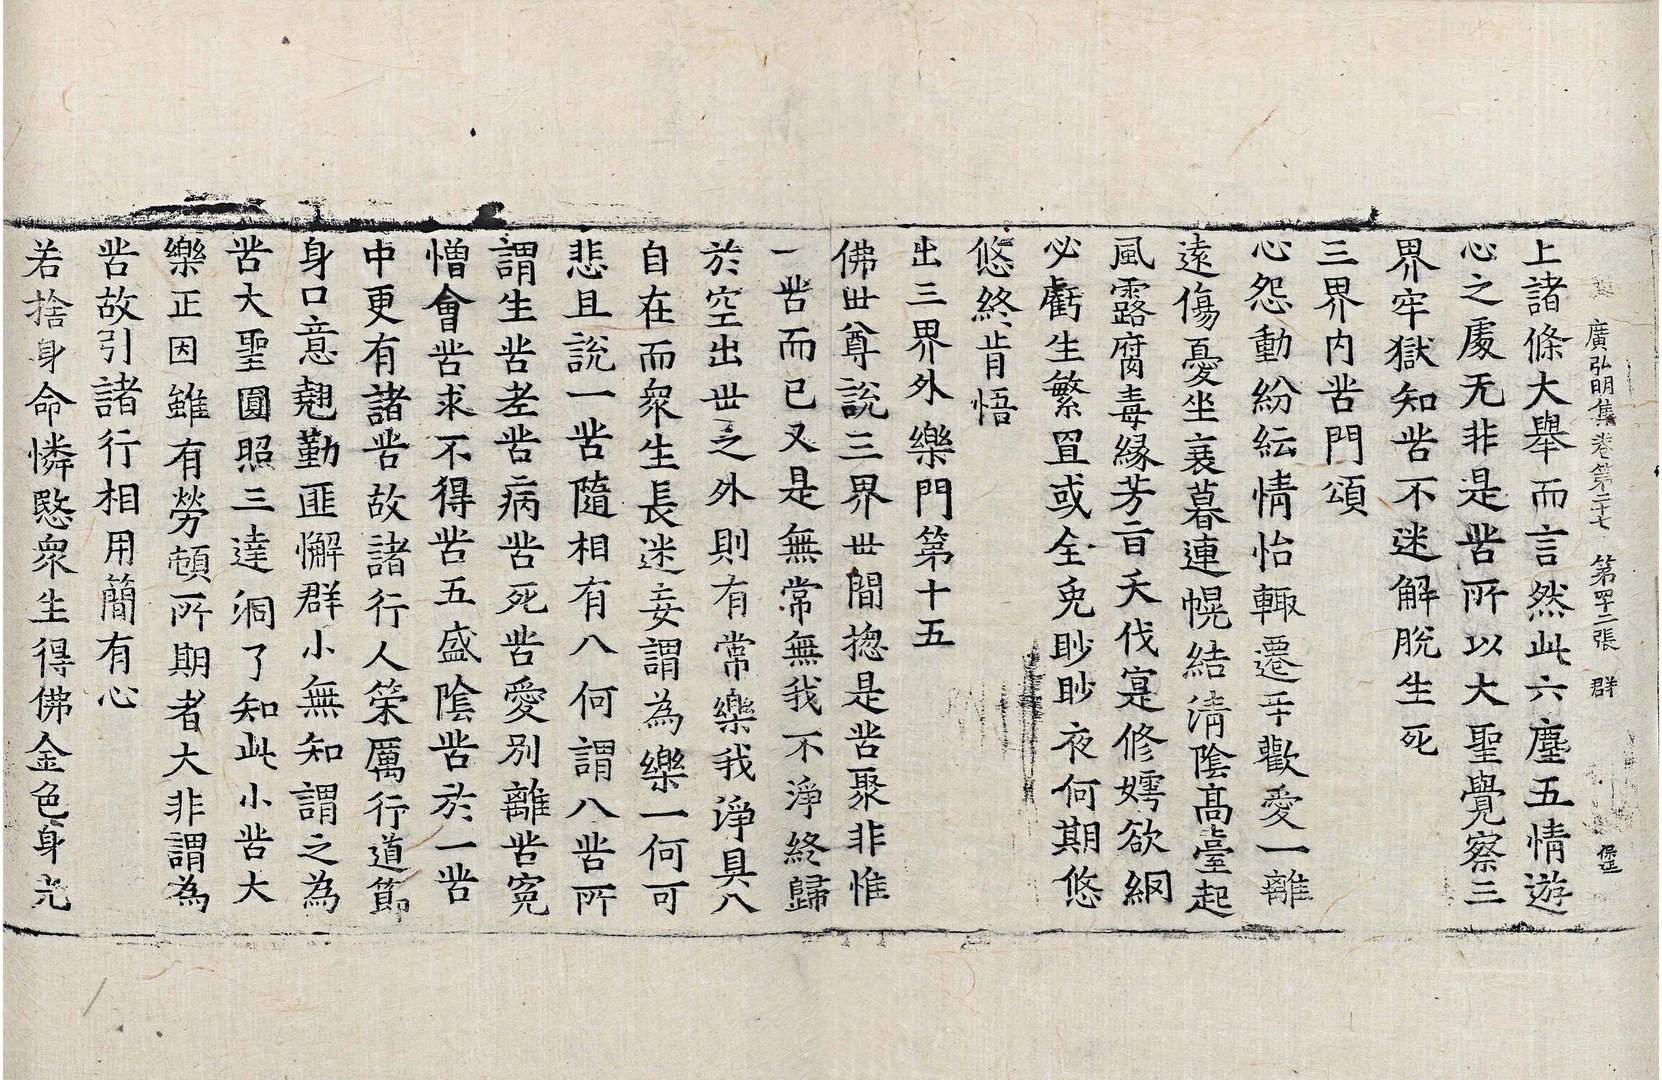 廣弘明集卷第二十七 第四十二張 群
上諸條大舉而言然此六塵五情遊
心之處无非是苦所以大聖覺察三
界牢獄知苦不迷解脫生死
三界內苦門頌
心怨動紛紜情怡輙遷平歡愛一離
遠傷憂坐衰暮連幌結清陰高臺起
風露腐毒緣芳旨夭伐寔修嫮欲網
必虧生繁罝或全兔眇眇夜何期悠
悠終肯悟
出三界外樂門第十五
佛世尊說三界世間揔是苦聚非惟
一苦而已又是無常無我不淨終歸
於空出世之外則有常樂我淨具八
自在而眾生長迷妄謂為樂一何可
悲且說一苦隨相有八何謂八苦所
謂生苦老苦病苦死苦愛別離苦冤
憎會苦求不得苦五盛陰苦於一苦
中更有諸苦故諸行人策厲行道節
身口意翹勤匪懈群小無知謂之為
苦大聖圓照三達洞了知此小苦大
樂正因雖有勞頓所期者大非謂為
苦故引諸行相用簡有心
若捨身命憐愍眾生得佛金色身光